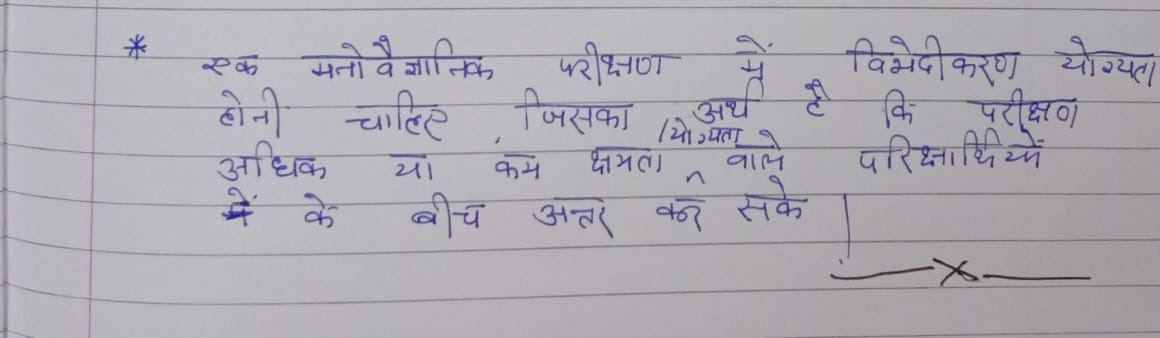 * एक मनोवैज्ञानिक परीक्षण में विभेदीकरण योग्यता
होनी चाहिए, जिसका अर्थ है कि परीक्षण
अधिक या कम क्षमता /योग्यता वाले परिक्षार्थियों
के बीच अन्तर कर सके |